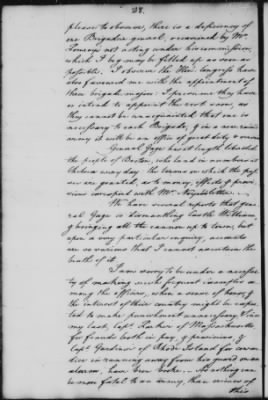 28.
please to observe, there is a deficiency of
one Brigadier general, occasioned by Mr.
Pomeroys not acting under his commission,
which I beg may be filled up as soon as
possible. I observe the Hon. Congress have
also favoured me with the appointment of
three brigade majors; I presume they have
or intend to appoint the rest soon, as
they cannot be unacquainted that one is
necessary to each Brigade, & in a new raised
army it will be an office of great duty &
General Gage has at length liberated
the people of Boston, who land in numbers at
Chelsea every day the terms on which the passes
are granted, as to money, effects & provisions
correspond with Mr.
We have several reports that general
Gage is dismantling Castle William,
& bringing all the cannon up to town; but
upon a very particular inquiry, accounts
are so various that I cannot ascertain the
truth of it.
I am sorry to be under a necessity
of making such frequent examples among
the officers, when a sense of honour, &
the interest of their country might be expected
to make punishment unnecessary. Since
my last, Capt. Parker of Massachusetts
for frauds both in pay, & provisions, &
Capt. Gardiner of Rhode Island for cowardice
in running away from his guard on an
alarm, have been broke. As nothing can
be more fatal to an army, than crimes of
this